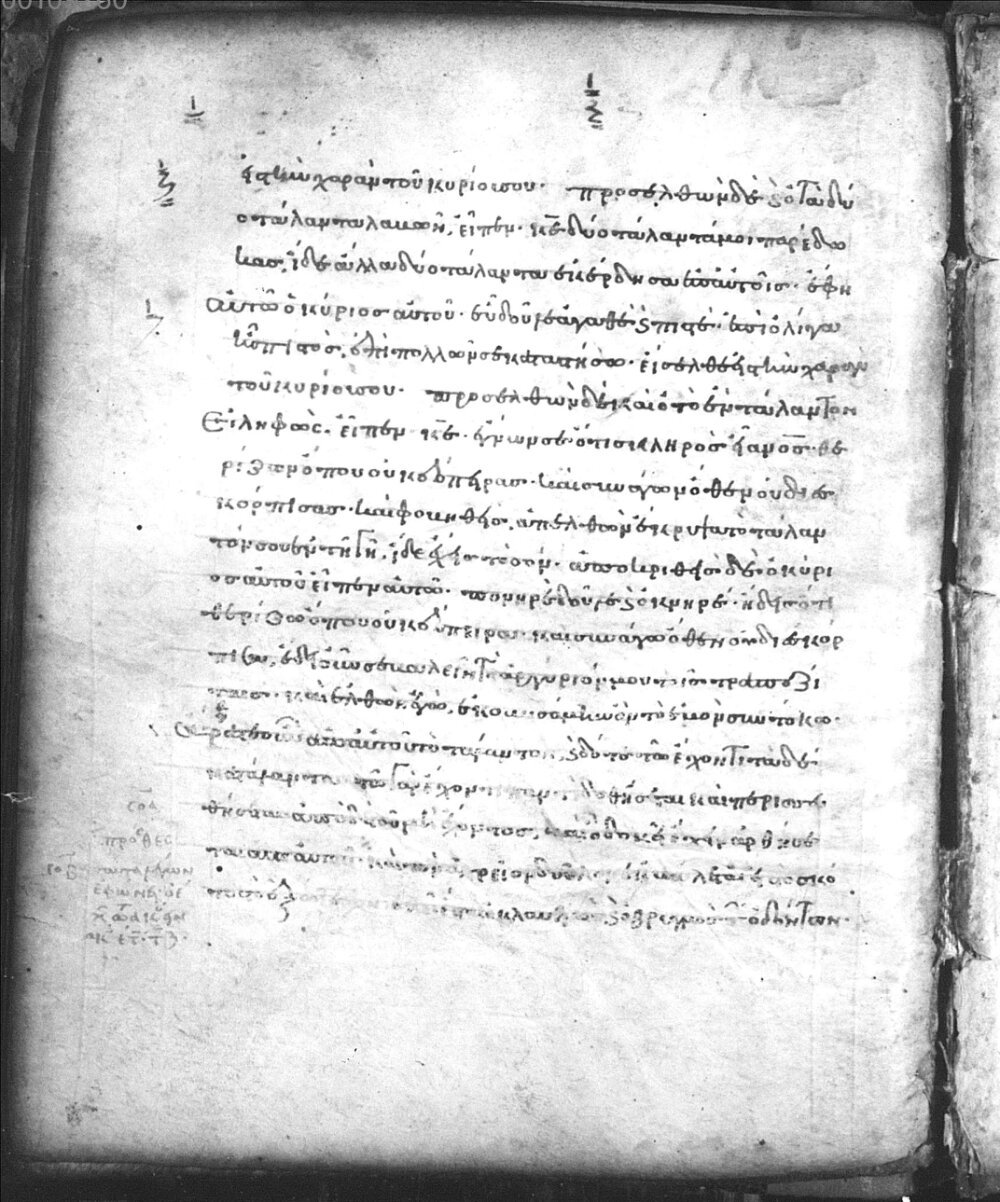 εἰς τὴν χαρὰν τοῦ κυρίου σου· προσελθὼν δὲ καὶ ὁ τὰ δύ
ο τάλαντα λαβὼν, εἶπεν· κε δύο τάλαντά μοι παρέδω
κας, ἴδε ἄλλα δύο τάλαντα ἐκέρδησα ἐπ αὐτοῖς· ἔφη
αὐτῶ ὁ κύριος αὐτοῦ· εὖ δοῦλε ἀγαθὲ καὶ πιστέ· ἐπὶ ὀλίγα
ἦς πιστὸς, ἐπὶ πολλῶν σε καταστήσω· εἴσελθε εἰς τὴν χαρὰν
τοῦ κυρίου σου· προσελθὼν δὲ καὶ ὁ τὸ ἓν τάλαντον
Εἰληφὼς· εἶπεν κε· ἔγνων σε ὅτι σκληρὸς εἶ ανος· θε
ρίζων ὅπου οὐκ ἔσπειρας· καὶ συνάγων ὅθεν οὐ διεσ
κόρπισας· καὶ φοβηθεὶς, ἀπελθὼν ἔκρυψα τὸ τάλαν
τόν σου ἐν τῆ γῆ, ἴδε ἔχεις τὸ σόν· ἀποκριθεὶς δὲ ὁ κύρι
ος αὐτοῦ εἶπεν αὐτῶ· πονηρὲ δοῦλε καὶ ὀκνηρέ· ἤδεις ὅτι
θερίζω ὅπου οὐκ ἔσπειρα· καὶ συνάγω ὅθεν οὐ διεσκόρ
πισα, ἔδει οὖν σε βαλεῖν τὸ ἀργύριόν μου τοῖς τραπεζί
ταις· καὶ ἐλθὼν ἐγὼ, ἐκομισάμην ἂν τὸ ἐμὸν σὺν τόκω·
Ἄρατε οὖν ἀπ αὐτοῦ τὸ τάλαντον, καὶ δότε τῶ ἔχοντι τὰ δέ
κα τάλαντα· τῶ γὰρ ἔχοντι παντὶ δοθήσεται καὶ περισσευ
θήσεται· ἀπὸ δὲ τοῦ μὴ ἔχοντος, καὶ ὃ δοκεῖ ἔχειν ἀρθήσε
ται ἀπ αὐτοῦ· καὶ τὸν ἀχρεῖον δοῦλον ἐκβάλετε εἰς τὸ σκό
τος τὸ ἐξώτερον· ἐκεῖ ἔσται ὁ κλαυθμὸς καὶ ὁ βρυγμὸς τῶν ὀδόντων·